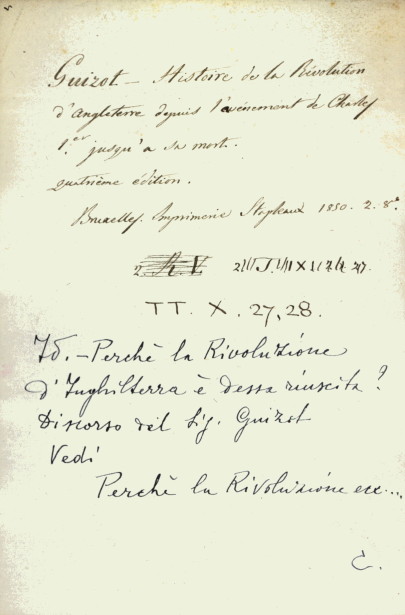 Guizot – Histoire de la Révolution
d'Angleterre depuis l'avénement de Charles
1.er jusqu'a sa mort.
quatrième édition.
Bruxelles. Imprimerie Stapleaux 1850. 2. 8º
2
TT. X. 27, 28.
Id. – Perchè la Rivoluzione
d'Inghilterra è dessa riuscita?
Discorso del Sig. Guizot
Vedi
Perchè la Rivoluzione ecc...
C.